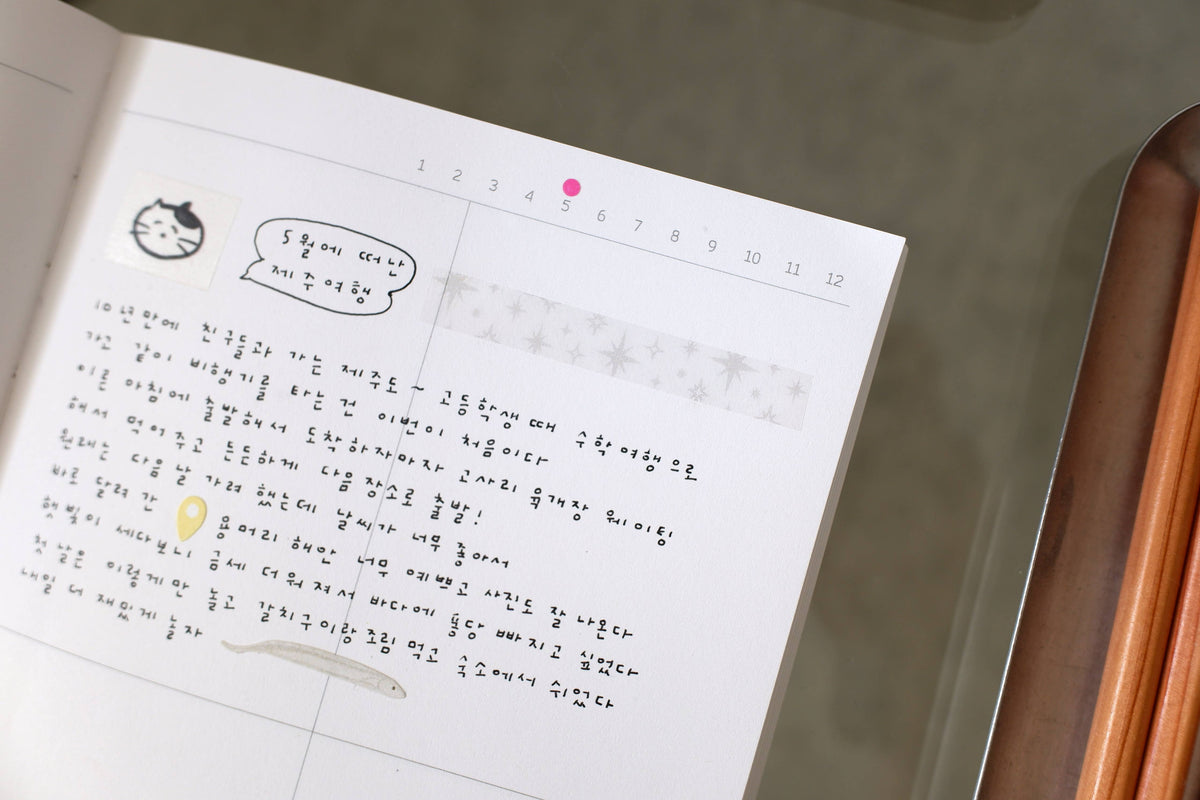 1 2 3 4 5 6 7 8 9 10 11 12
5월에 떠난
제주 여행
10년만에 친구들과 가는 제주도 ~ 고등학생 때 수학여행으로
가고 같이 비행기를 타는 건 이번이 처음이다
이른 아침에 출발해서 도착하자마자 고사리 육개장 웨이팅
해서 먹어주고 든든하게 다음 장소로 출발!
원래는 다음날 가려했는데 날씨가 너무 좋아서
바로 달려간 용머리해안 너무 예쁘고 사진도 잘 나온다
햇빛이 세다보니 금세 더워져서 바다에 퐁당 빠지고 싶었다
첫날은 이렇게만 놀고 갈치구이랑 조림 먹고 숙소에서 쉬었다
내일 더 재밌게 놀자